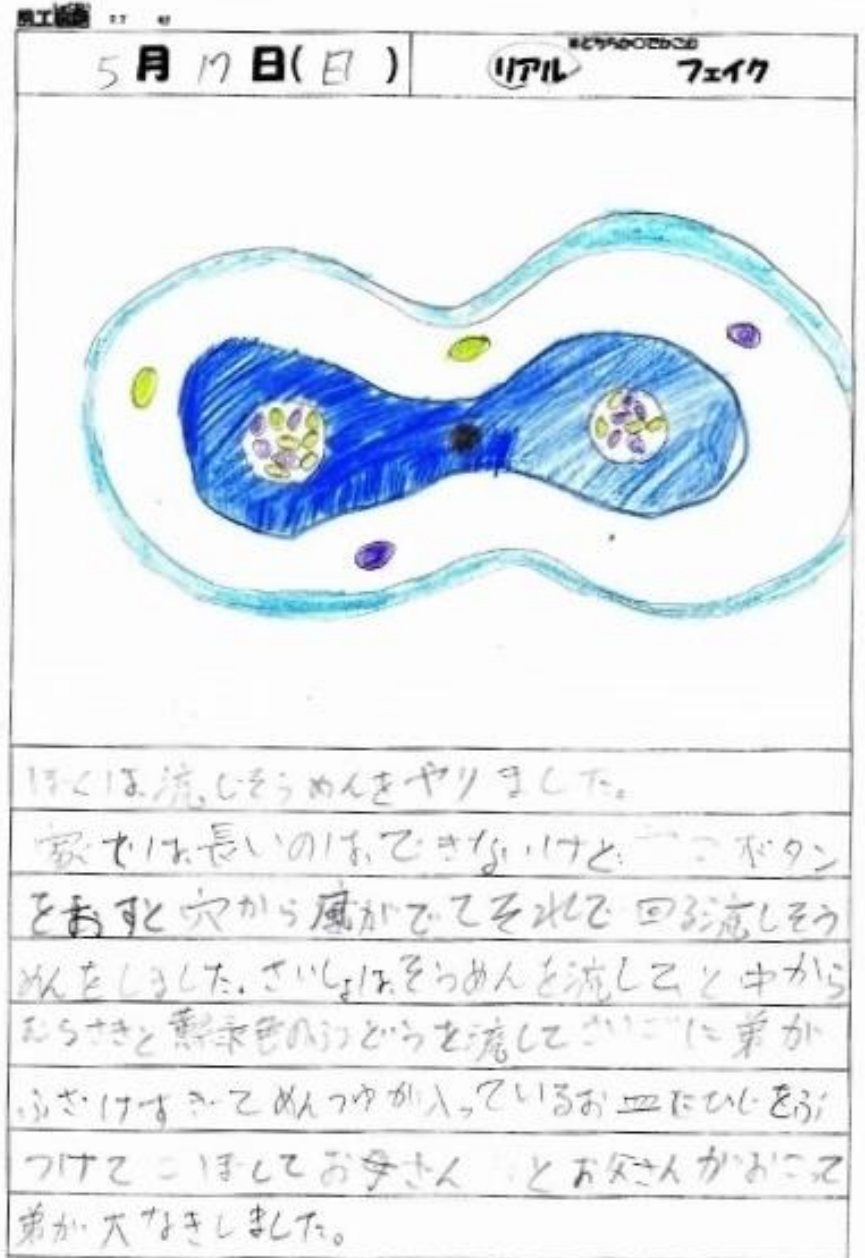 5月17日(日)
※どちらか○でかこむ
リアル フェイク
ぼくは、流しそうめんをやりました。
家では、長いのは、できないけど、ボタン
をおすと穴から風がでてそれで回る流しそう
めんをしました。さいしょは、そうめんを流して、と中から
むらさきと黄緑色のぶどうを流してさいごに弟が
ふざけすぎてめんつゆが入っているお皿にひじをぶ
つけてこぼしてお母さんとお父さんがおこって
弟が大なきしました。